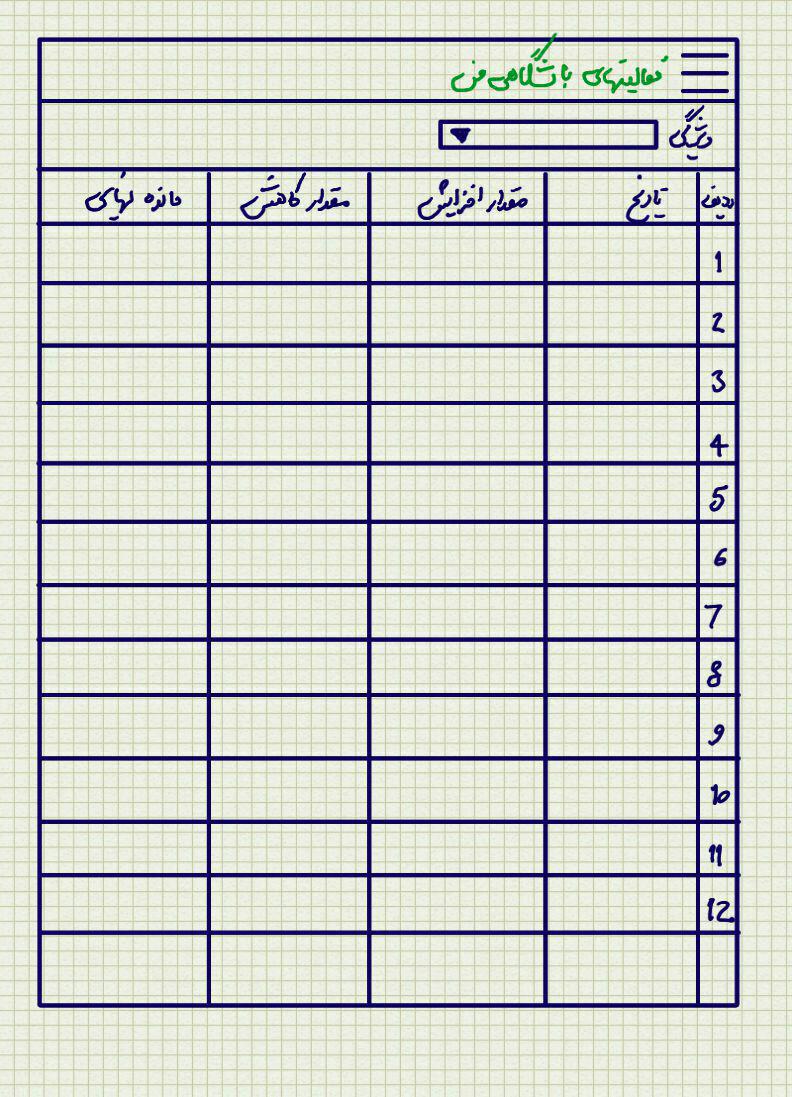 فعالیتهای باشگاهی من
ویژگی
ردیف تاریخ مقدار افزایش مقدار کاهش مانده نهایی
1
2
3
4
5
6
7
8
9
10
11
12